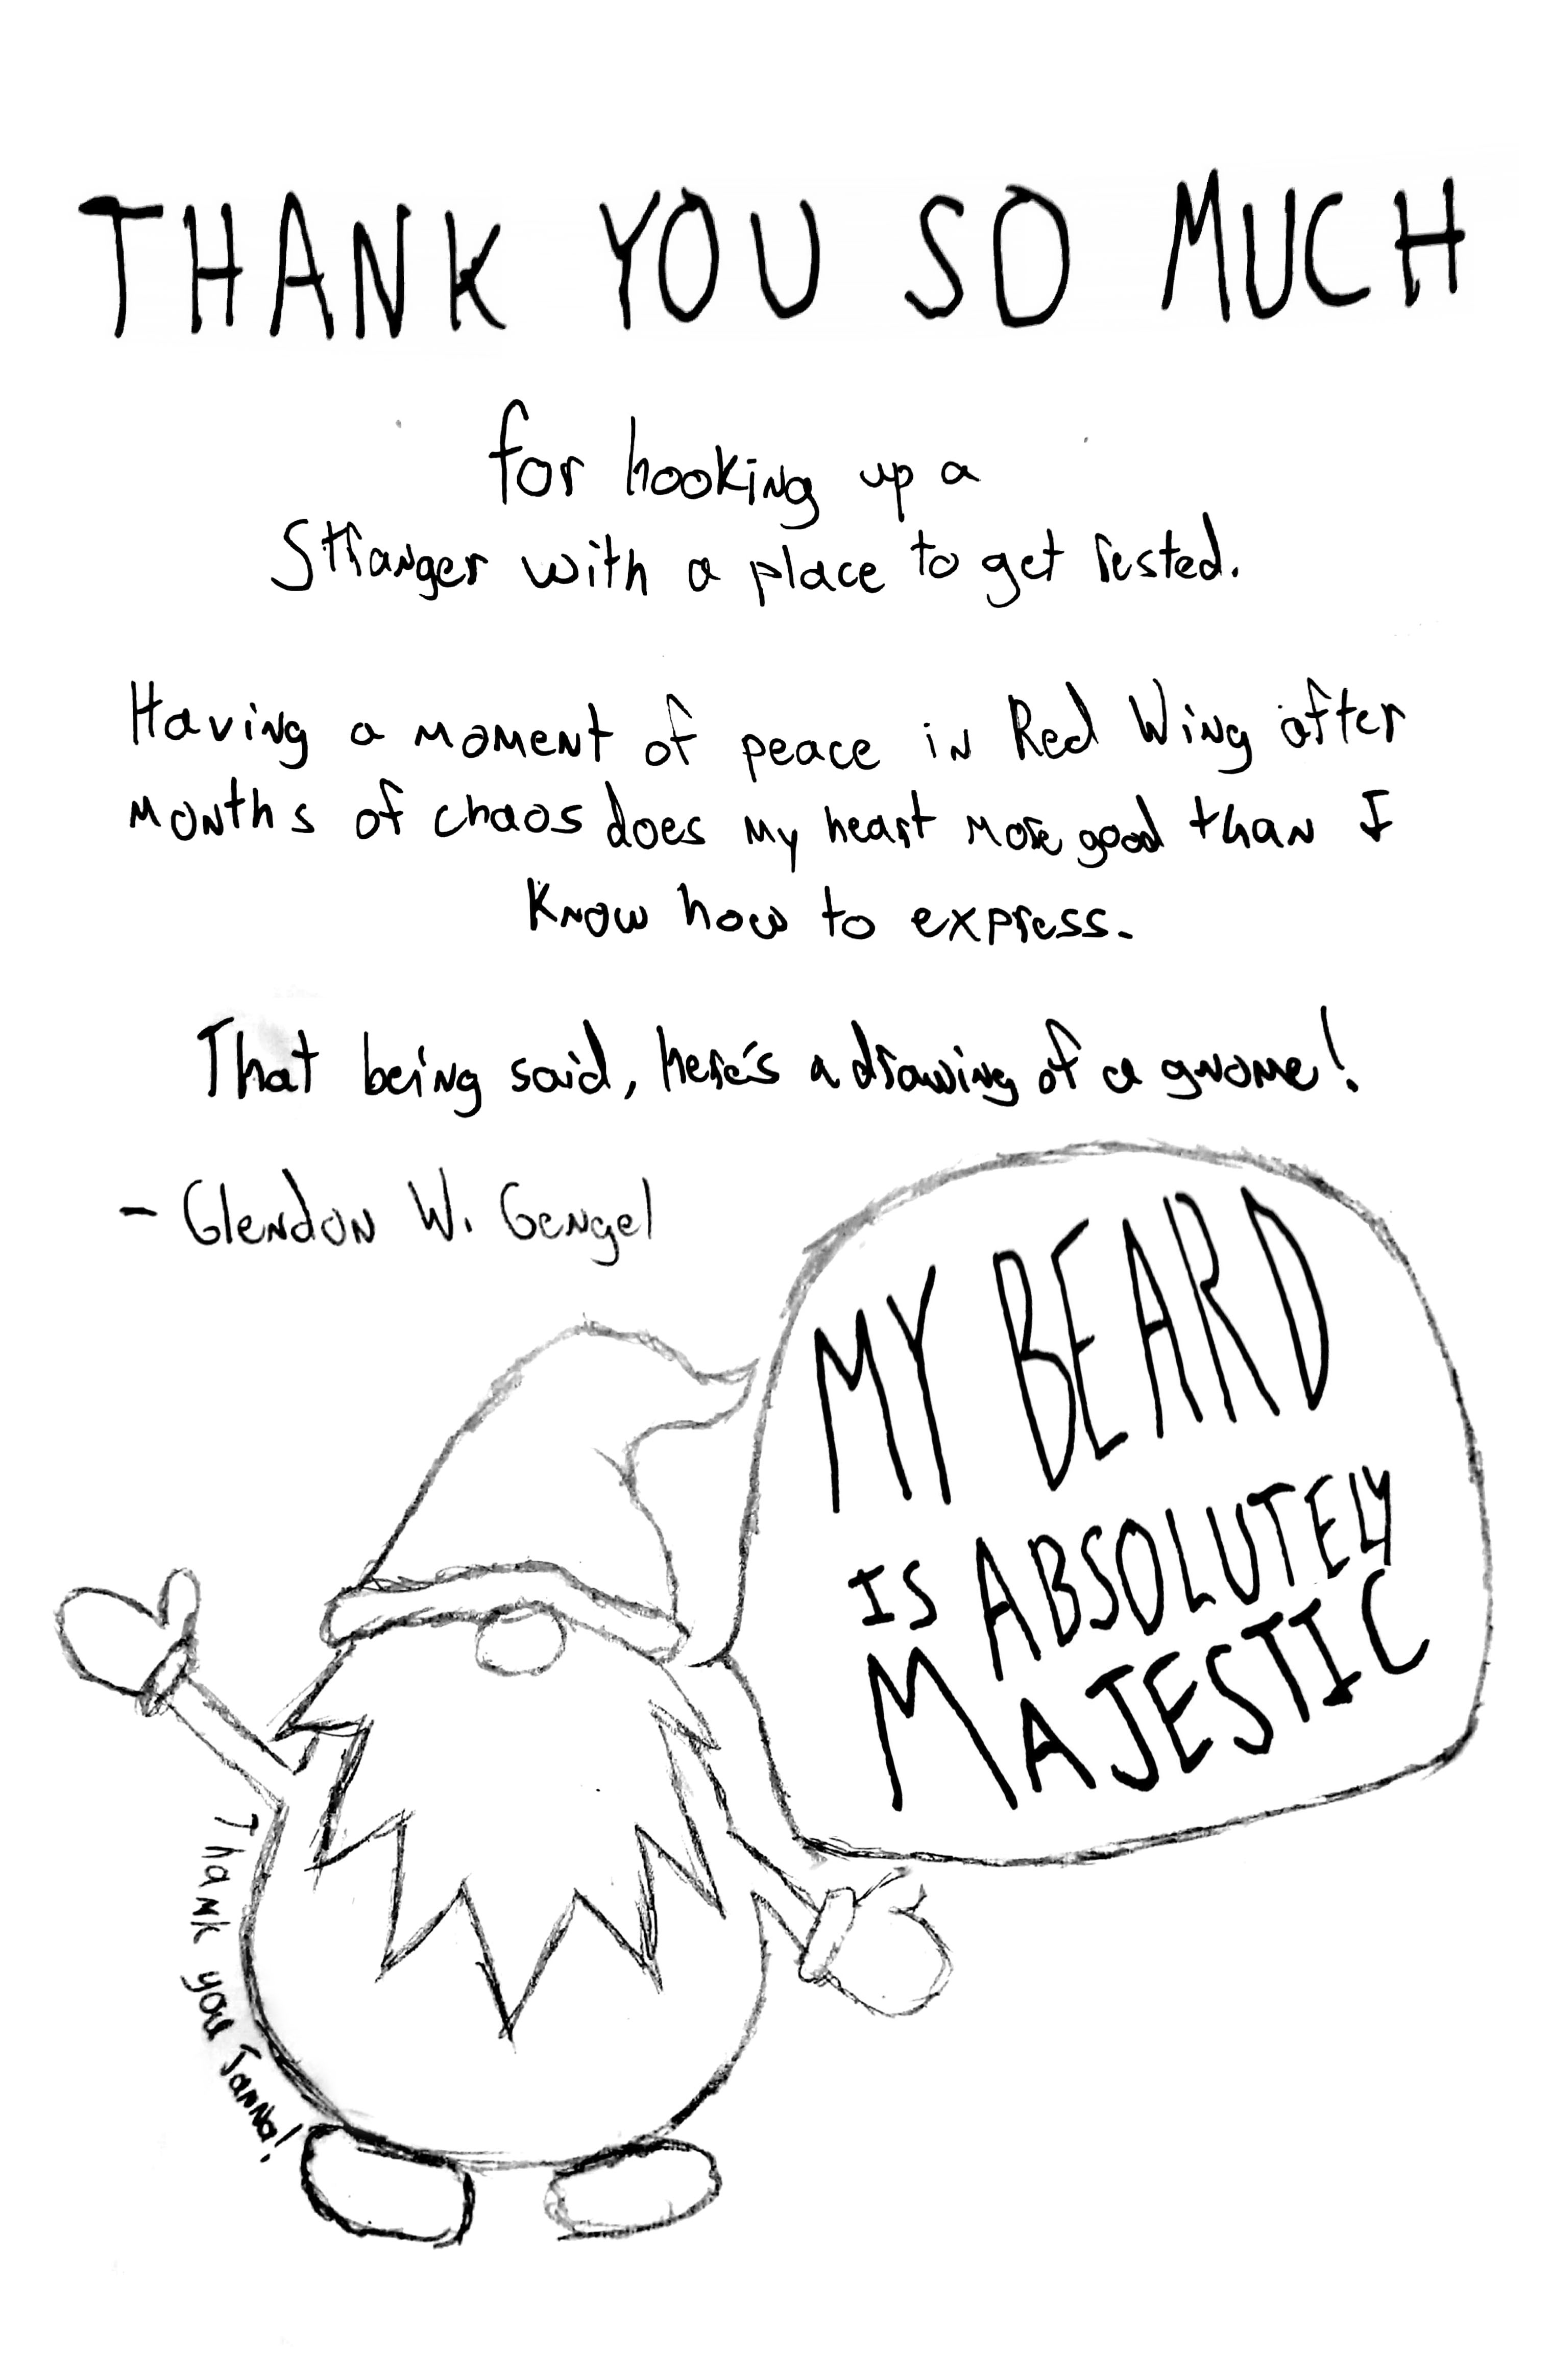 THANK YOU SO MUCH
for hooking up a
Stranger with a place to get rested.
Having a moment of peace in Red Wing after
months of chaos does my heart more good than I
know how to express.
That being said, here's a drawing of a gnome!
- Glendon W. Gengel
MY BEARD
IS ABSOLUTELY
MAJESTIC
Thank you Janna!